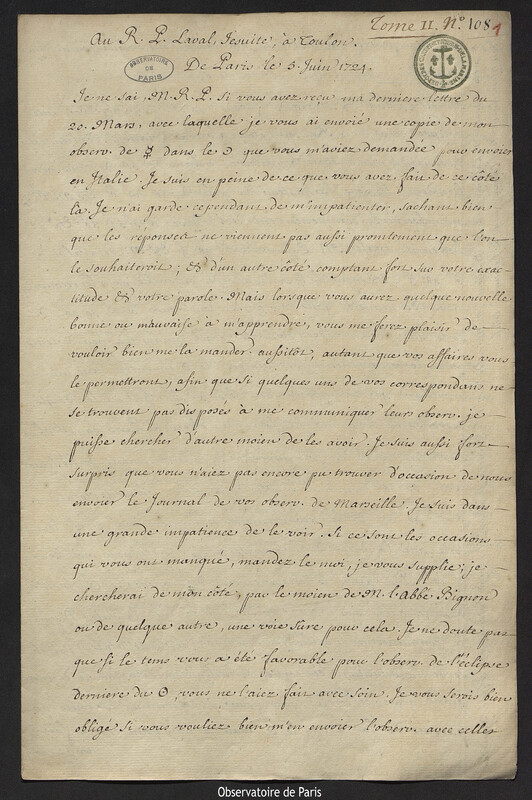 Tome II. N.º 108
1
Au R. P. Laval, Jesuite, à Toulon.
De Paris le 5. Juin 1724.
OBSERVATOIRE
DE
PARIS
Je ne sai, M. R. P. si vous avez reçu ma derniere lettre du
20. Mars, avec laquelle je vous ai envoié une copie de mon
observ. de ☿ dans le ☉ que vous m'aviez demandée pour envoier
en Italie. Je suis en peine de ce que vous avez fait de ce côté
là. Je n'ai garde cependant de m'impatienter, sachant bien
que les reponses ne viennent pas aussi promtement que l'on
le souhaiteroit; & d'un autre côté comptant fort sur votre exac-
titude & votre parole. Mais lorsque vous aurez quelque nouvelle
bonne ou mauvaise à m'apprendre, vous me ferez plaisir de
vouloir bien me la mander aussitôt, autant que vos affaires vous
le permettront, afin que si quelques uns de vos correspondans ne
se trouvent pas disposés à me communiquer leurs observ. je
puisse chercher d'autre moien de les avoir. Je suis aussi fort
surpris que vous n'aiez pas encore pu trouver d'occasion de nous
envoier le Journal de vos observ. de Marseille. Je suis dans
une grande impatience de le voir. Si ce sont les occasions
qui vous ont manqué, mandez le moi, je vous supplie; je
chercherai de mon côté, par le moien de M. l'Abbé Bignon
ou de quelque autre, une voie sûre pour cela. Je ne doute pas
que si le tems vous a été favorable pour l'observ. de l'éclipse
derniere du ☉, vous ne l'aiez fait avec soin. Je vous serois bien
obligé si vous vouliez bien m'en envoier l'observ. avec celles
Observatoire de Paris